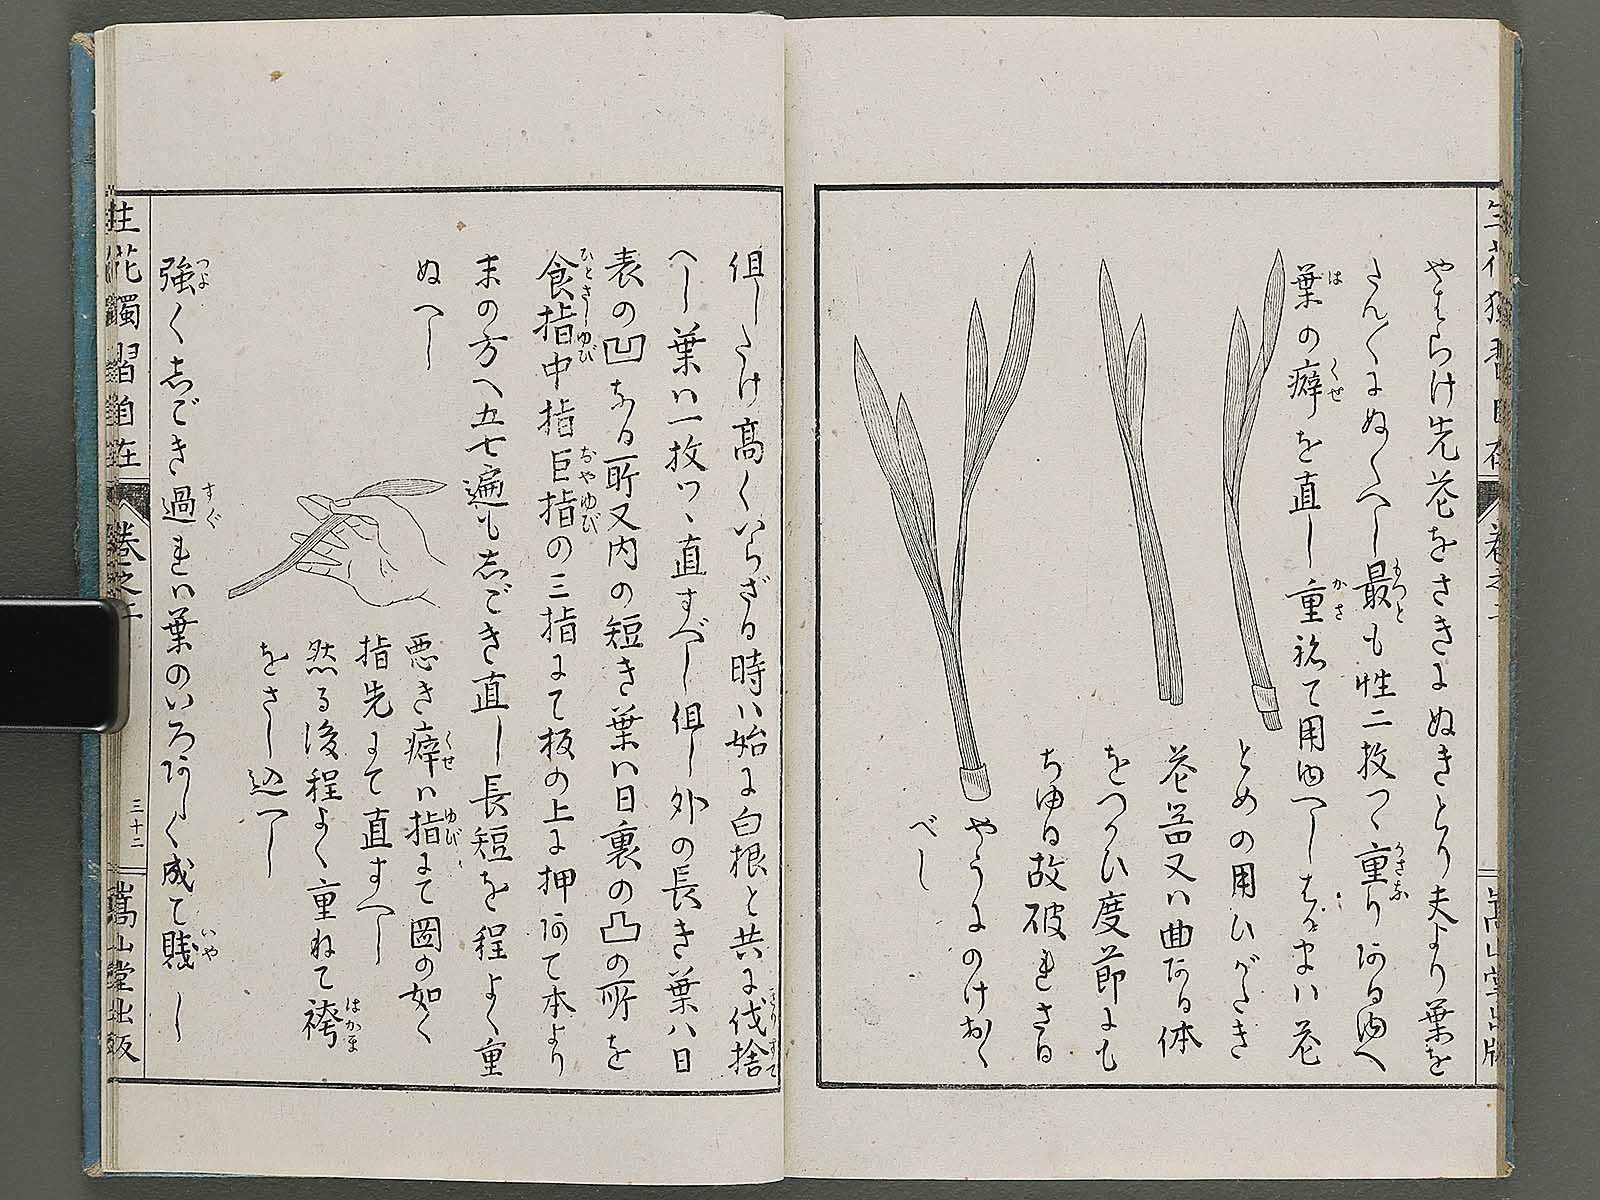 生花獨習自在 卷之二 嵩山堂出版
やはらけ先花をさきにぬきとり夫より葉を
だん〱にぬくべし最も性二枚つゝ重りある由へ
葉の癖を直し重ねて用由べしはかまハ花
とめの用ひがたき
花器又ハ曲ある体
をつかひ度節にも
ちゆる故破れざる
やうにのけおく
べし
但したけ高くいらざる時ハ始に白根と共に伐捨
べし葉ハ一枚ツヽ直すべし但し外の長き葉ハ日
表の凹なる所又内の短き葉ハ日裏の凸の所を
食指中指巨指の三指にて板の上に押あて本より
末の方へ五七遍もしごき直し長短を程よく重
ぬべし
悪き癖ハ指にて圖の如く
指先にて直すべし
然る後程よく重ねて袴
をさし込べし
強くしごき過れハ葉のいろあしく成て賤し
生花獨習自在 卷之二 三十二 嵩山堂出版